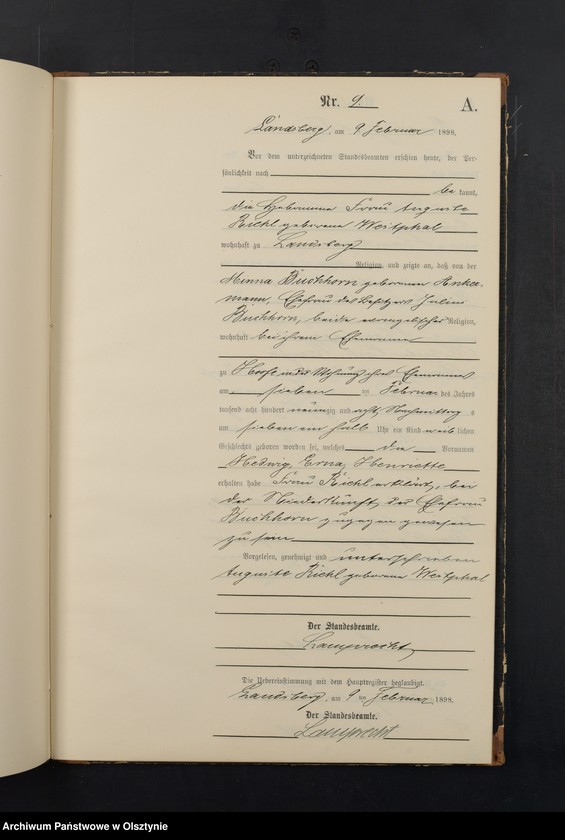 Nr. 9.
A.
Landsberg, am 9 Februar 1898.
Vor dem unterzeichneten Standesbeamten erschien heute, der Per-
sönlichkeit nach
be kannt,
die Hebamme Frau Auguste
Riehl geborene Westphal
wohnhaft zu Landsberg
Religion, und zeigte an, daß von der
Minna Buchhorn geborenen Anker-
mann, Ehefrau des Besitzers Julius
Buchhorn, beide evangelischer Religion,
wohnhaft bei ihrem Ehemanne
zu Hoofe in der Wohnung ihres Ehemannes
am sieben ten Februar des Jahres
tausend acht hundert neunzig und acht, Nachmittag s
um sieben ein halb Uhr ein Kind weib lichen
Geschlechts geboren worden sei, welches die Vornamen
Hedwig, Erna, Henriette
erhalten habe. Frau Riehl erklärt, bei
der Niederkunft der Ehefrau
Buchhorn zugegen gewesen
zu sein
Vorgelesen, genehmigt und unterschrieben
Auguste Riehl geborene Westphal
Der Standesbeamte.
Lamprecht
Die Uebereinstimmung mit dem Hauptregister beglaubigt.
Landsberg, am 9 ten Februar 1898.
Der Standesbeamte.
Lamprecht
Archiwum Państwowe w Olsztynie